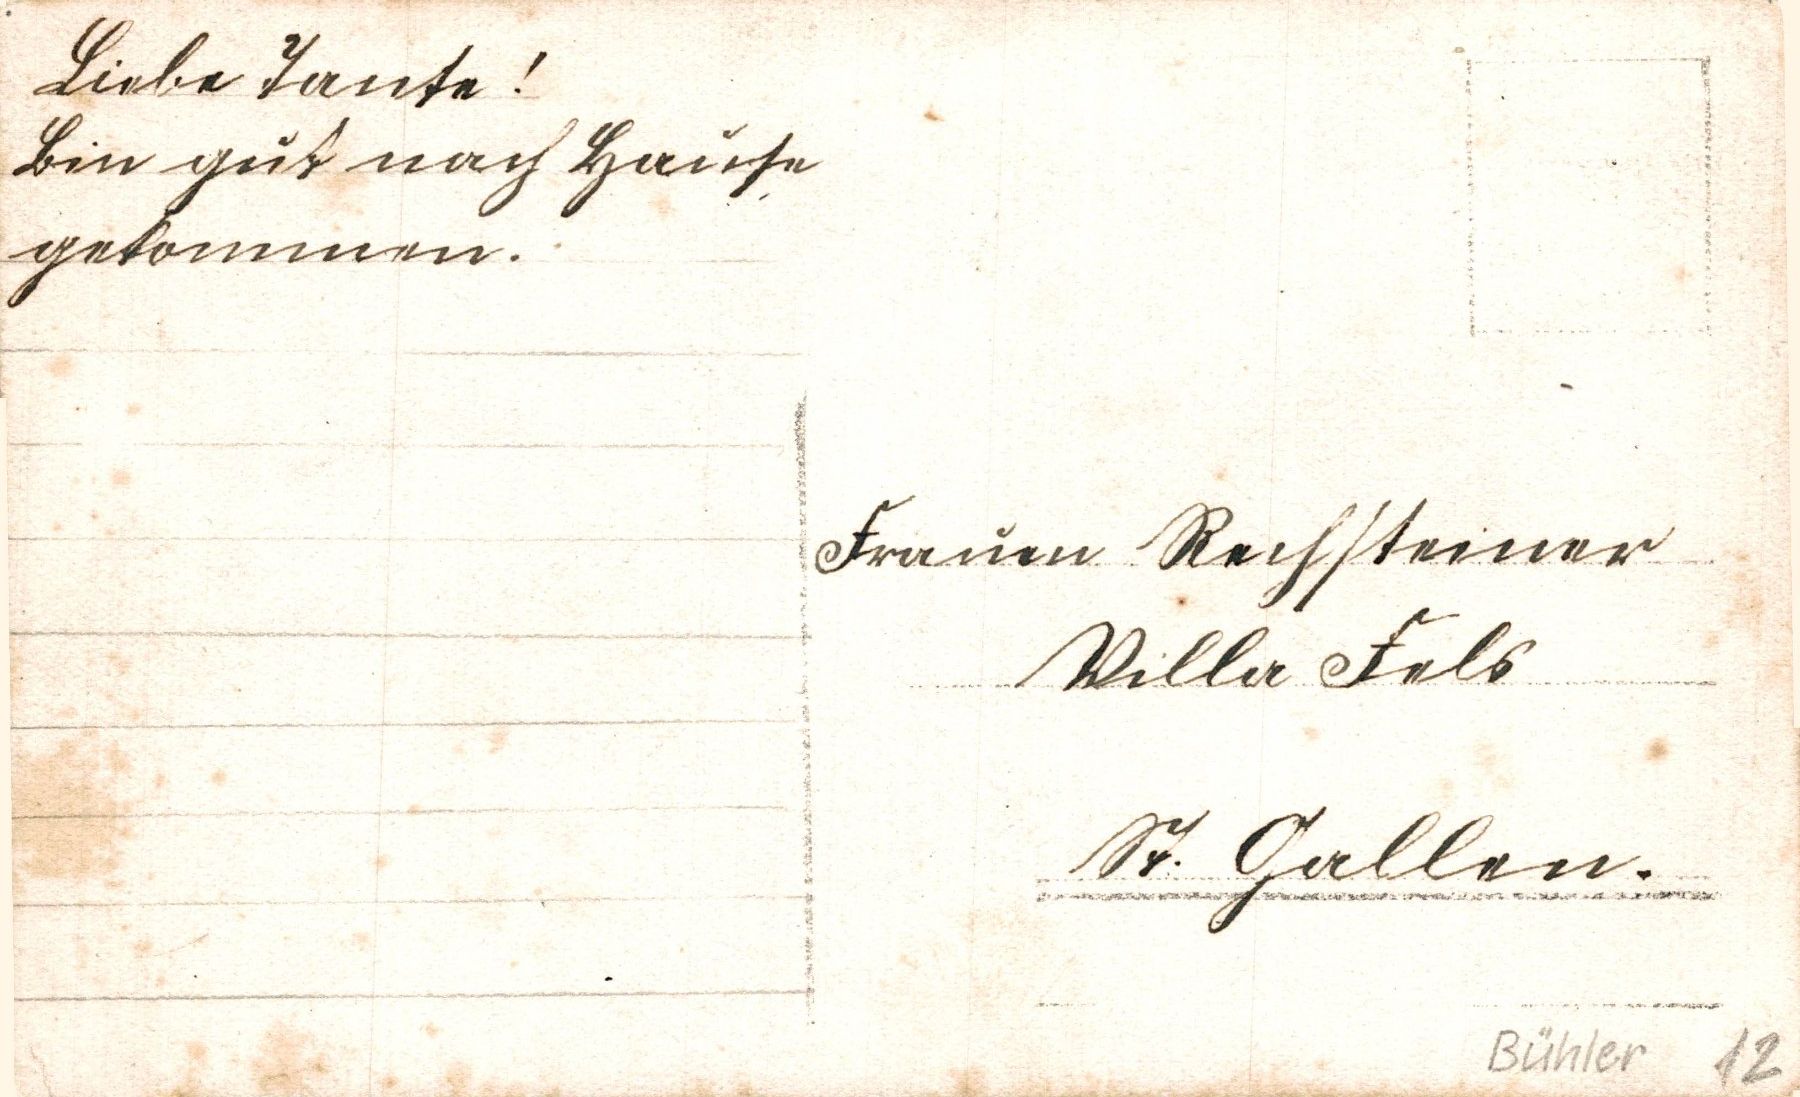 Liebe Tante!
Bin gut nach Hause
gekommen.
Frauen Rechsteiner
Villa Fels
St. Gallen.
Bühler 12